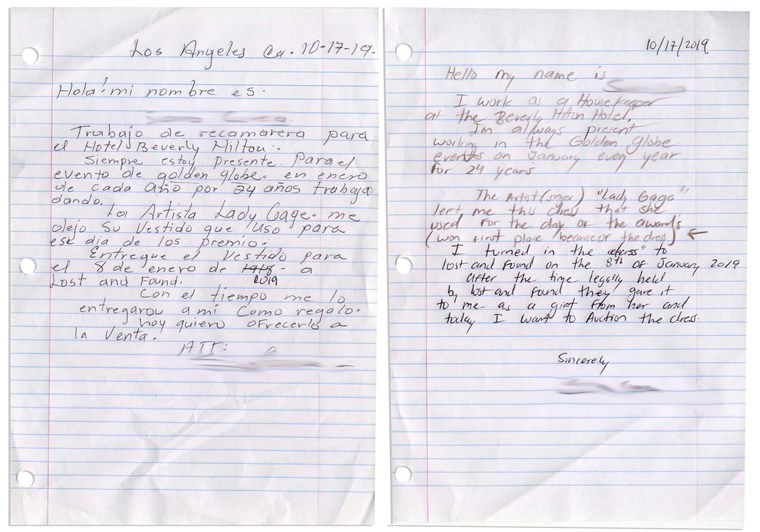 Los Angeles Ca. 10-17-19-
Hola! mi nombre es.
Trabajo de recamarera para
el Hotel Beverly Milton.
Siempre estoy presente Para el
evento de golden globe. en enero
de cada año por 24 años trabaja
dando.
La Artista Lady Gage. me
olejo Su Vestido que Uso para
ese dia de los premio.
Entregue el Vestido para
el 8 de enero de 1918 a
2019
Lost and Found.
Con el tiempo me lo
entregarou a mi Como regalo.
hoy quiero ofrecerlo a
la Venta.
ATT:
10/17/2019
Hello my name is
I work as a Housekeeper
at the Beverly Hilton Hotel.
I'm always present
working in the Golden Globe
events on January every year
for 24 years
The Artist (singer) "Lady Gaga"
left me this dress that she
used for the day of the awards
(won first place because of the dress) ←
I turned in the "dress" to
lost and found on the 8th of January 2019
After the time legally held
by lost and found they gave it
to me as a gift from her and
today I want to Auction the dress.
Sincerely